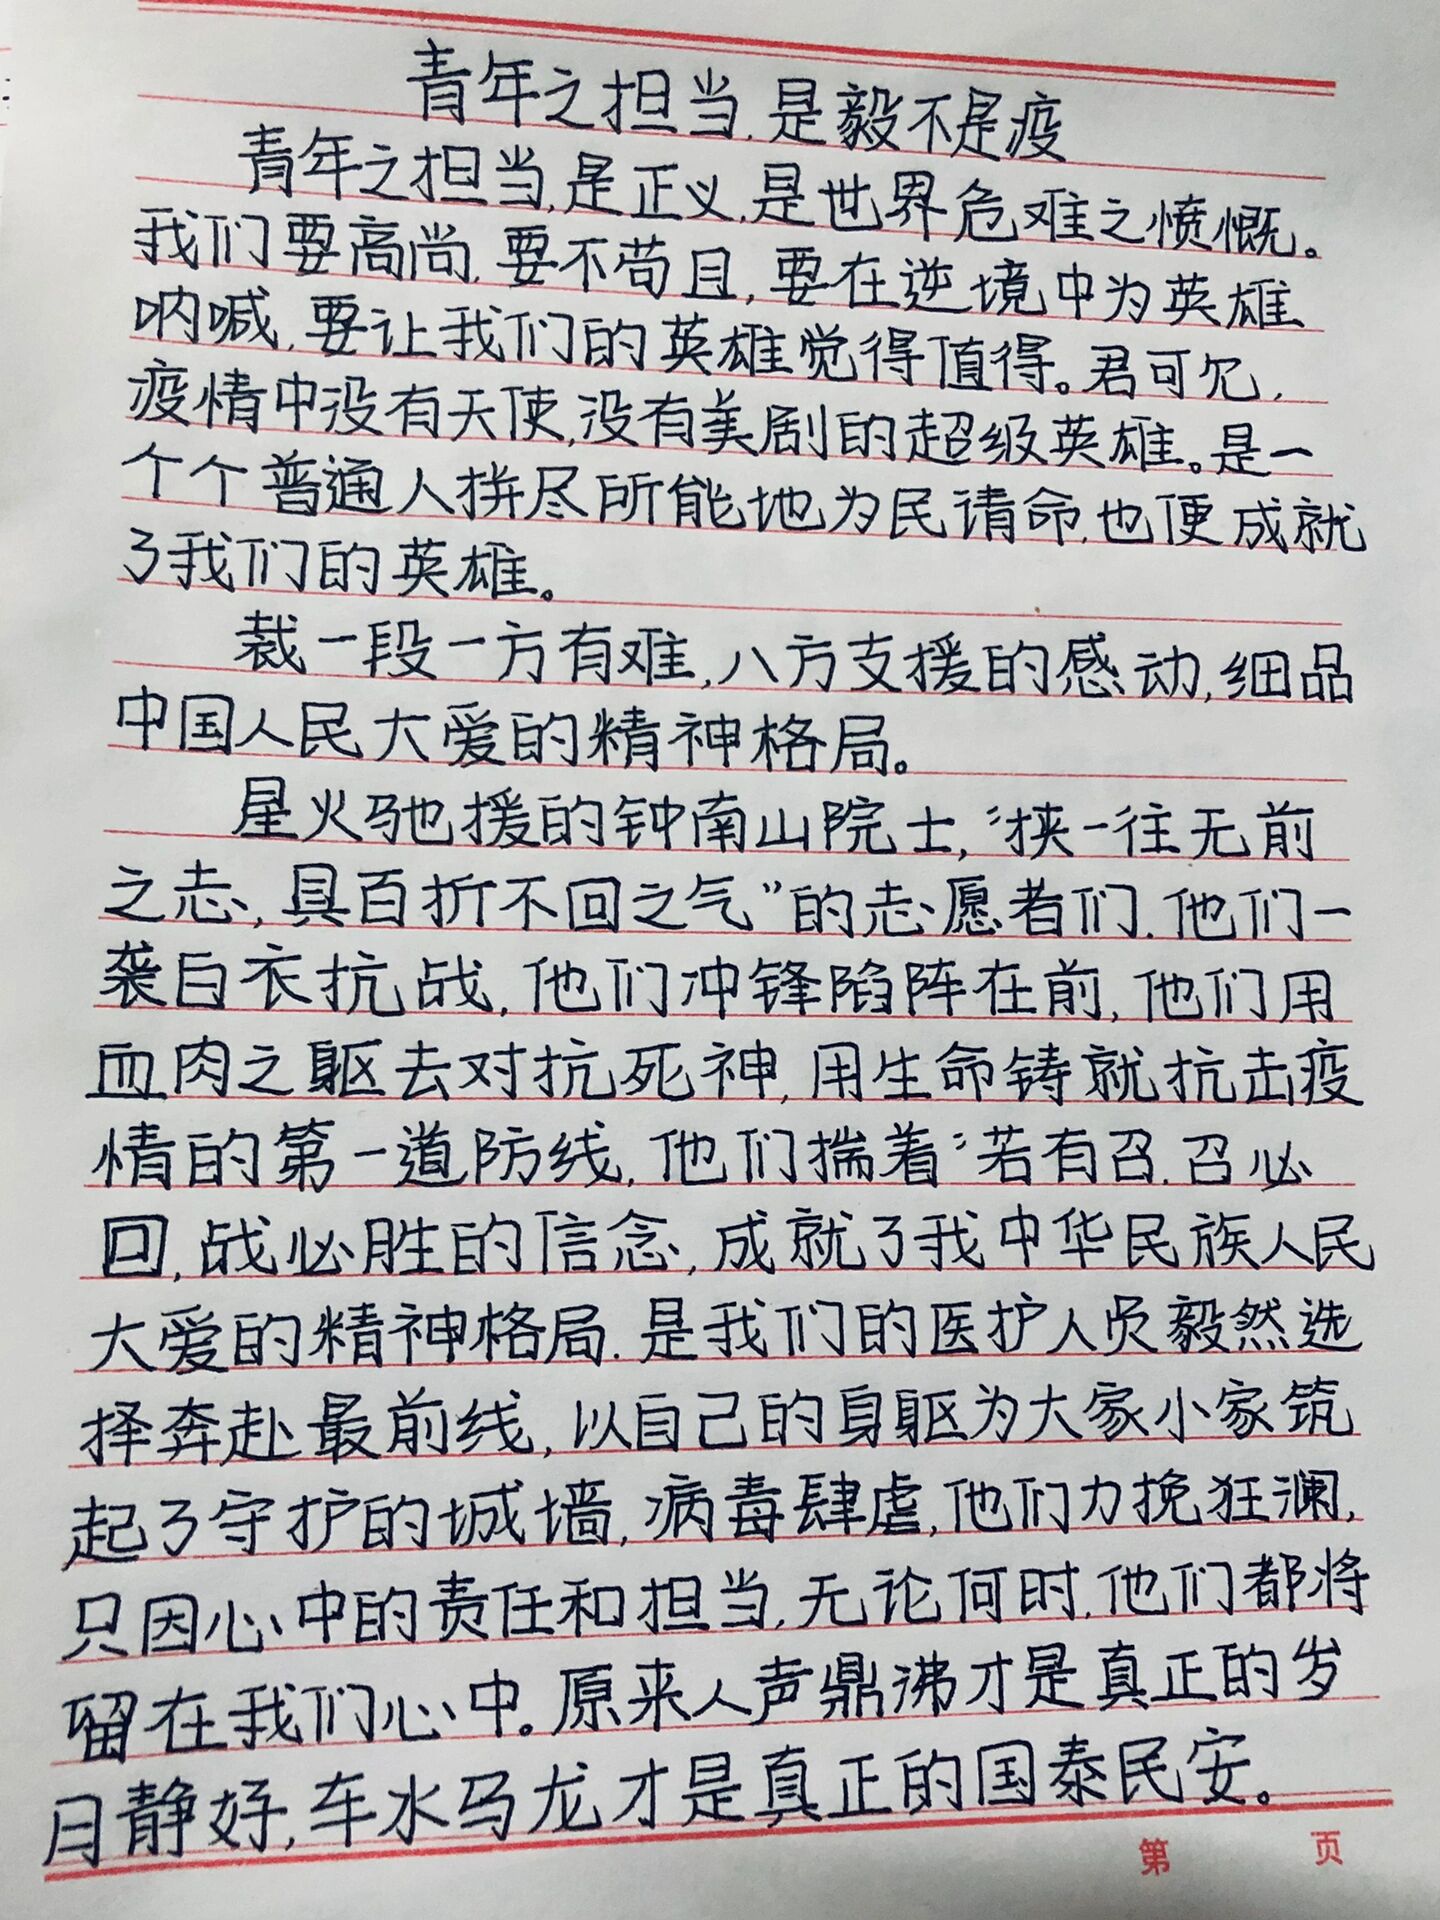 青年之担当,是毅不是疫
青年之担当,是正义,是世界危难之愤慨。
我们要高尚,要不苟且,要在逆境中为英雄
呐喊,要让我们的英雄觉得值得。君可见,
疫情中没有天使,没有美剧的超级英雄。是一
个个普通人拼尽所能地为民请命,也便成就
了我们的英雄。
裁一段一方有难,八方支援的感动,细品
中国人民大爱的精神格局。
星火驰援的钟南山院士,“挟一往无前
之志,具百折不回之气”的志愿者们.他们一
袭白衣抗战,他们冲锋陷阵在前,他们用
血肉之躯去对抗死神,用生命铸就抗击疫
情的第一道防线,他们揣着“若有召,召必
回,战必胜的信念,成就了我中华民族人民
大爱的精神格局.是我们的医护人员毅然选
择奔赴最前线,以自己的身躯为大家小家筑
起了守护的城墙,病毒肆虐,他们力挽狂澜,
只因心中的责任和担当,无论何时,他们都将
留在我们心中。原来人声鼎沸才是真正的岁
月静好,车水马龙才是真正的国泰民安。
第 页